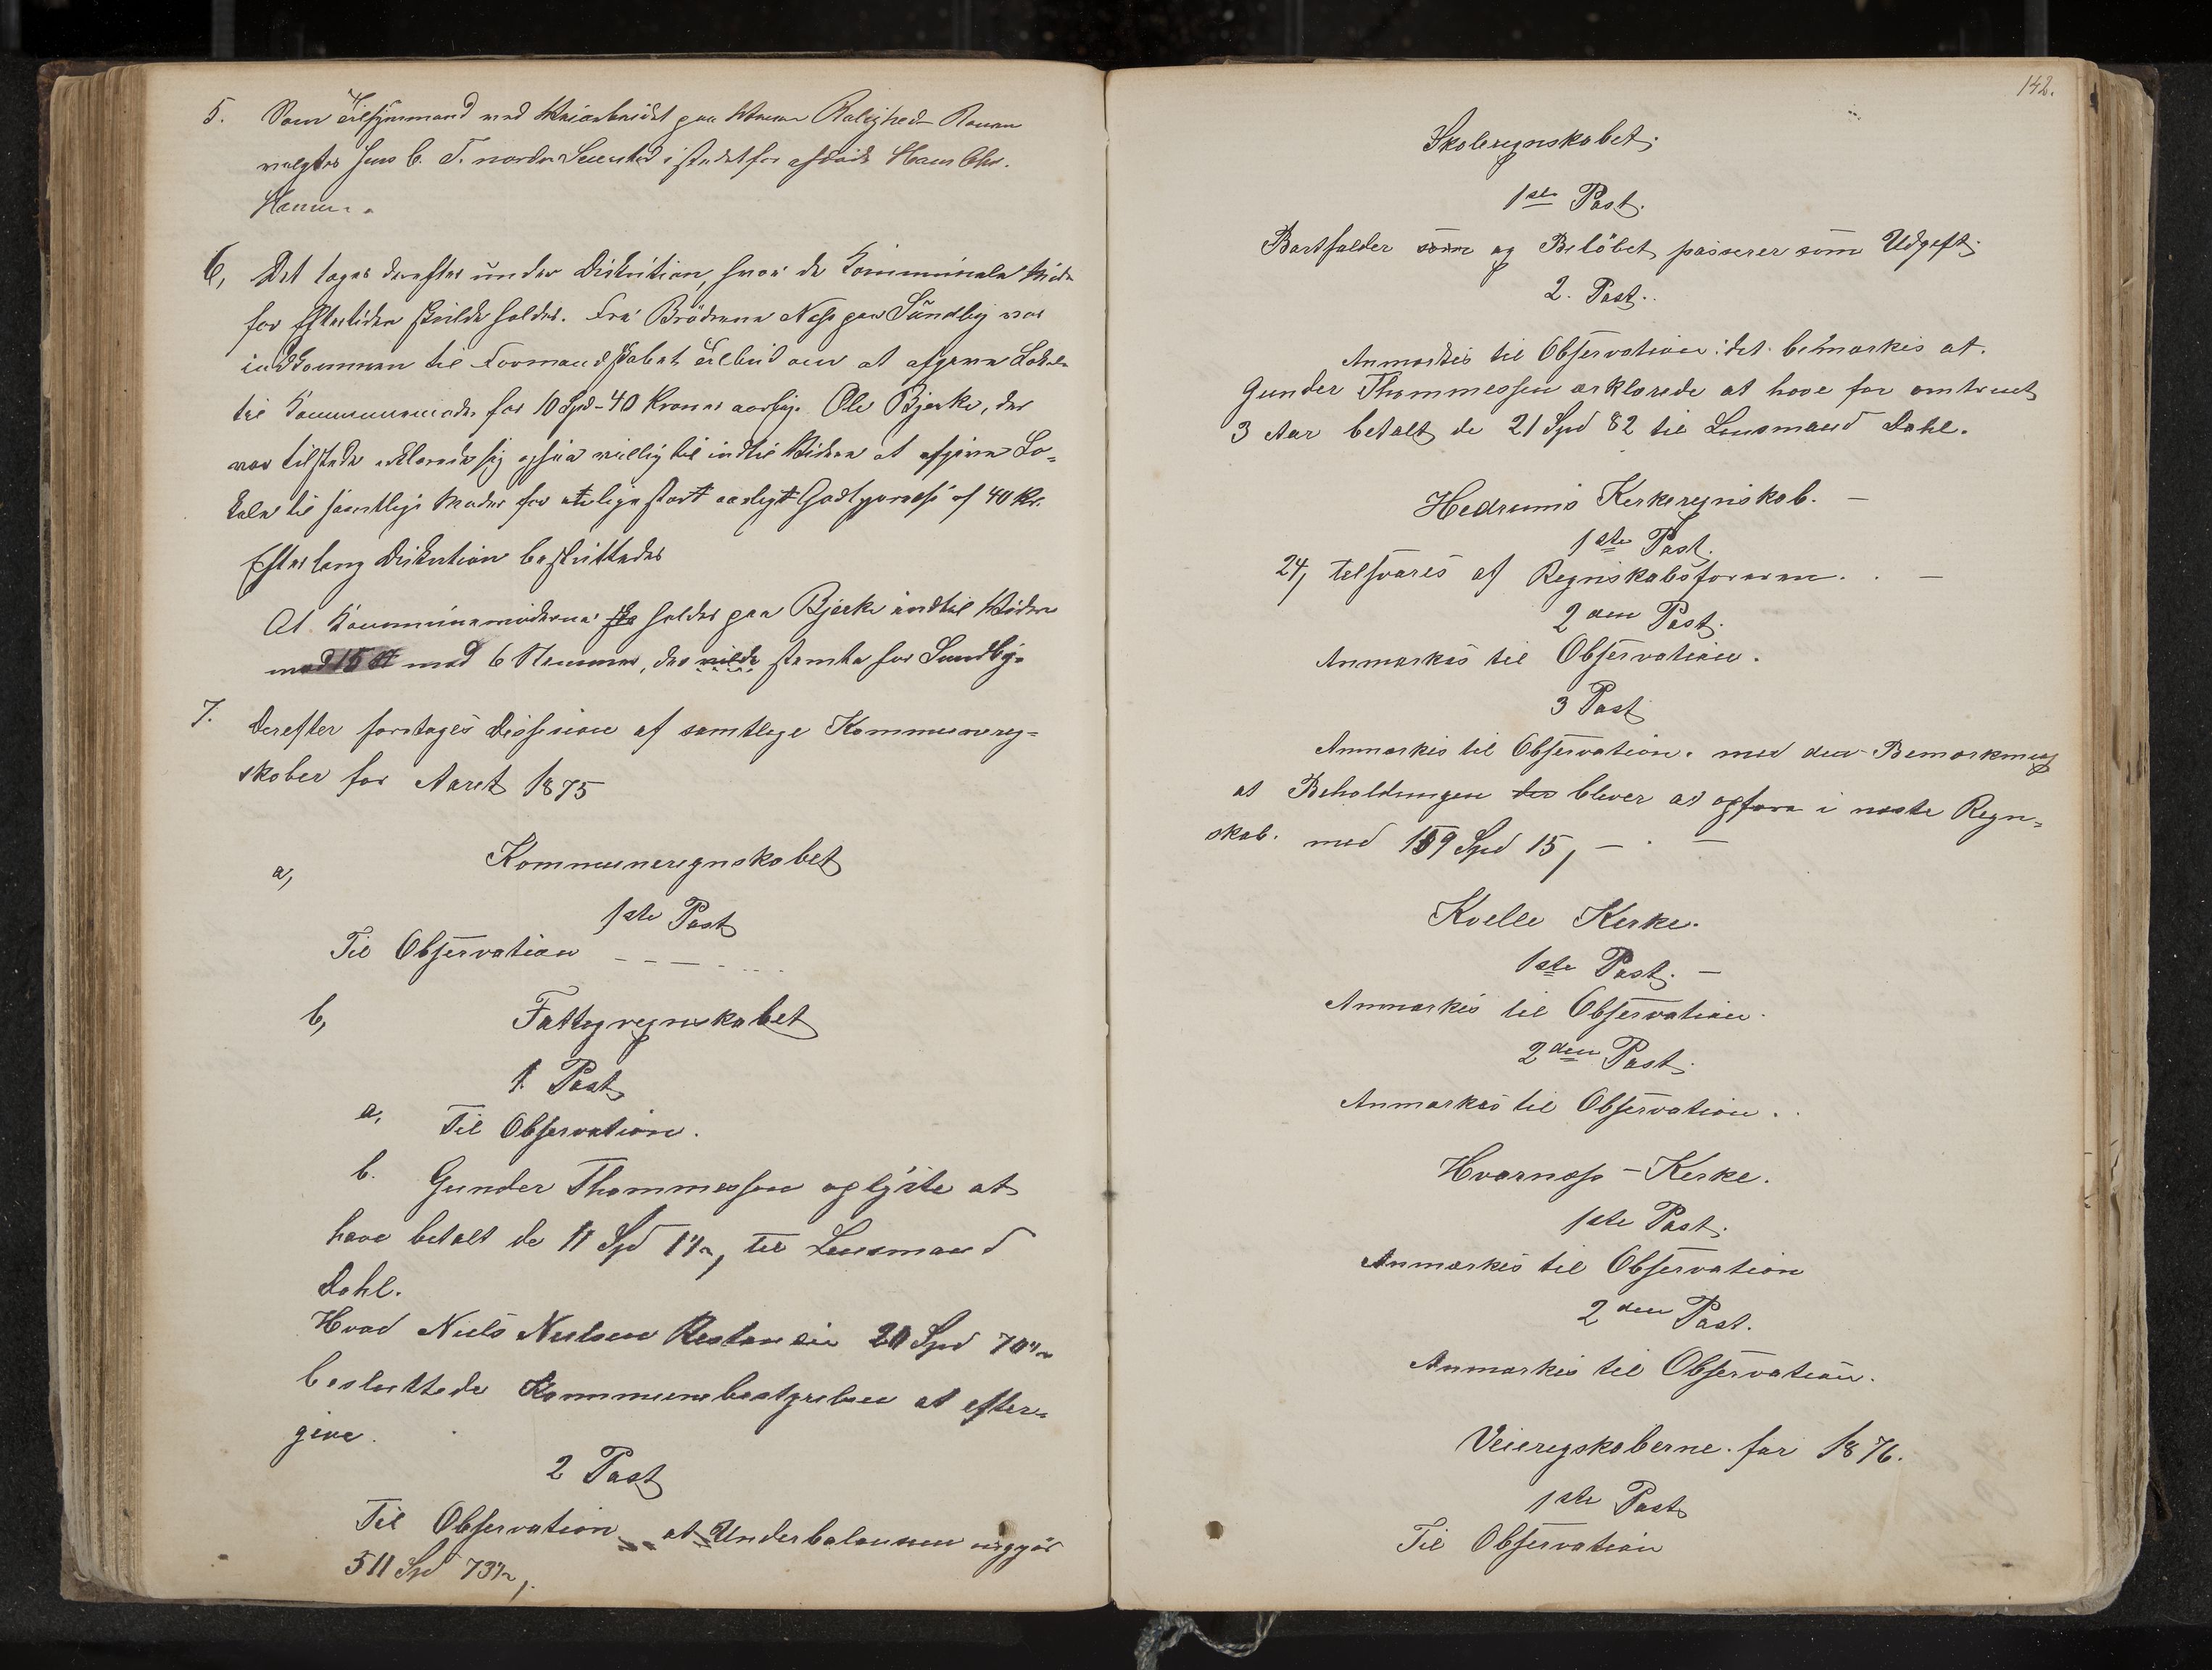 5. Som Tilsynmand ved Veiarbeidet paa
valgtes Jens C. T. nordre i stedet for afdøde Hans Chr.
6, Det toges derefter under Diskution, hvor de Kommunale Møder
for Eftertiden skulde holdes. Fra Brödrene Næss paa Sundby var
indkommen til Formandskabet Tilbud om at afgive Lokale
til Kommunemøder for 10 Spd - 40 Kroner aarlig. Ole Bjerke, der
var tilstede erklærede sig ogsaa villig til indtil Videre at afgive Lo=
kale til samtlige Møder for et lige stort aarligt Godtgjørelse af 40 Kr.
Efter lang Diskution besluttedes
At Kommunemøderne holdes paa Bjerke indtil Videre
med 15 St med 6 Stemmer, der vilde stemte for Sundby.
7. Derefter foretoges Desision af samtlege Kommunereg=
skaber for Aaret 1875
a, Kommuneregnskabet
1ste Post
Til Observation
b, Fattegregnskabet
1. Post
a, Til Observation.
b. Gunder Thommessen oplyste at
have betalt de 11 Spd til Lensmand
Dahl.
Hvad Niels Nielsen Restansie 20 Spd 70
besluttede Kommunebestyrelsen at efter=
give.
2 Post
Til Observation at Underbalansen udgjør
511 Spd 73
142.
Skoleregnskabet.
1ste Post.
Bortfalder som og Belöbet passerer som Udgift.
2. Post.
Anmærkes til Observation: det bemærkes at
Gunder Thommessen erklærede at have for omtrent
3 Aar betalt de 21 Spd 82 til Lensmand Dahl.
Hedrums Kerkeregnskab. -
1ste Post.
24, telsvares af Regnskabsføreren. -
2den Post.
Anmærkes til Observation.
3 Post
Anmærkes til Observation. med den Bemærkning
at Beholdningen der blever at opføre i næste Regn=
skab. med 159 Spd 15, -
Kvelle Kerke.
1ste Post. -
Anmærkes til Observation.
2den Post.
Anmærkes til Observation.
Hvarnæss - Kerke.
1ste Post.
Anmærkes til Observation
2den Post.
Anmærkes til Observation.
Veiregskaberne for 1876.
1ste Post
Til Observation